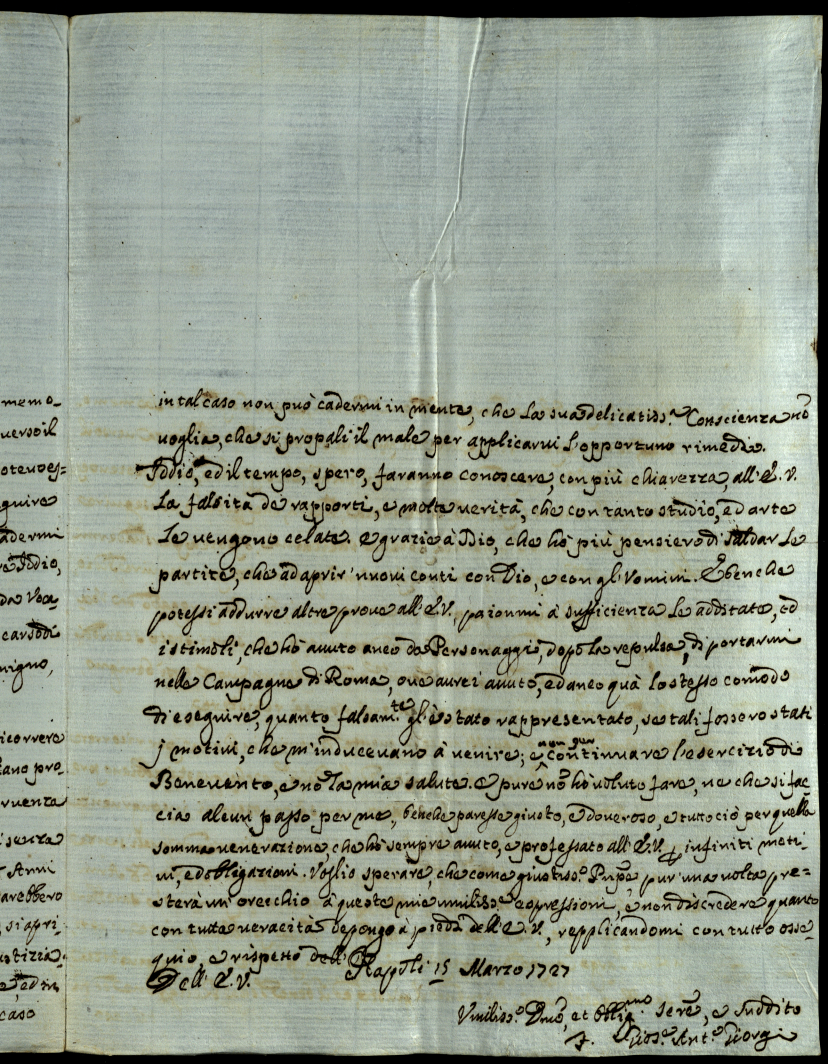 memo_
verso il
guire
adermi
Iddio,
vigno,
icorrere
ano pro_
senza
Anni
arebbero
si apri_
stizia
caso
in tal caso non può cadermi in mente, che la sua delicatiss.ª Conscienza nõ
voglia, che si propali il male per applicarvi l'opportuno rimedio.
Iddio, ed il tempo, spero, faranno conoscere, con più chiarezza, all'E.V.
la falsità de rapporti, e molte verità, che con tanto studio, ed arte
le vengono celate. e grazie à Dio, che hò più pensiero di saldar le
partite, che ad aprir nuovi conti con Dio, e con gl'Uomini. E benche
potessi addurre altre prove all'E.V. paionmi à sufficienza le additate, ed
i stimoli, che hò avuto anco da Personaggi, dopò la repulsa, di portarmi
nelle Campagne di Roma, ove avrei avuto, ed anco quà lo stesso comodo
di eseguire, quanto falsam.te gl'è stato rappresentato, se tali fossero stati
j motivi, che m'inducevano à venire; e non gia continuare l'esercizio di
Benevento, e nõ la mia salute. e pure nõ hò voluto fare, ne che si fac
cia alcun passo per me, benche paresse giusto, e doveroso, e tutto ciò per quella
somma venerazione, che hò sempre avuto, e professato all'E.V. infiniti moti
vi, ed obligazioni. Voglio sperare, che come giustiss.º Pnpẽ pur una volta pre=
sterà un'orecchio à queste mie umiliss.e espressioni, e non discredere quanto
con tutta veracità depongo à piedi dell'E.V., repplicandomi con tutto osse
quio, e rispetto dell'
Dell'E.V. Napoli 15 Marzo 1727
Umiliss.º Dmõ, et Oblig.mo Serẽ, e Suddito
Gios.e Ant.º Giorgi